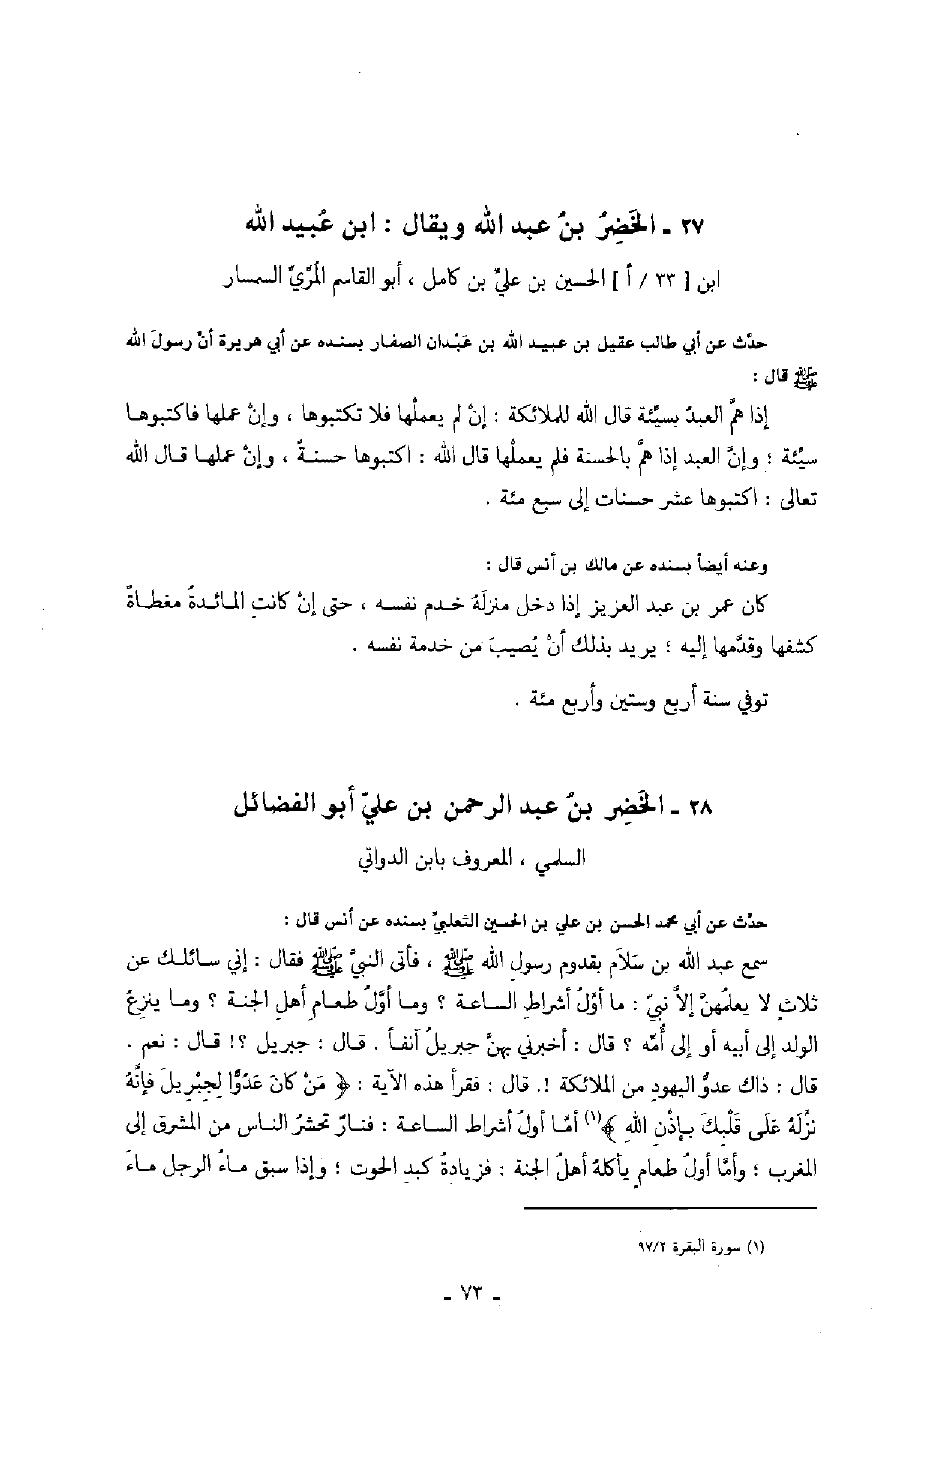 ٢٧ ـ الخَضِرُ بنُ عبد الله ويقال : ابن عُبيد الله
ابن [ ٢٣ / أ ] الحسين بن عليّ بن كامل ، أبو القاسم المُرّيّ السمسار
حدّث عن أبي طالب عقيل بن عبيد الله بن عَبْدان الصفار بسنده عن أبي هريرة أنّ رسولَ الله
ﷺ قال :
إذا همَّ العبدُ بسيِّئة قال الله للملائكة : إنْ لم يعملْها فلا تكتبوها ، وإنْ عملها فاكتبوها
سيِّئة ؛ وإنَّ العبد إذا همَّ بالحسنة فلم يعملْها قال الله : اكتبوها حسنةً ، وإنْ عملها قال الله
تعالى : اكتبوها عشر حسنات إلى سبع مئة .
وعنه أيضاً بسنده عن مالك بن أنس قال :
كان عمر بن عبد العزيز إذا دخل منزلَهُ خدم نفسه ، حتى إنْ كانتِ المائدةُ مغطاةً
كشفها وقدَّمها إليه ؛ يريد بذلك أنْ يُصيبَ من خدمة نفسه .
توفي سنة أربع وستين وأربع مئة .
٢٨ ـ الخَضِر بنُ عبد الرحمن بن عليّ أبو الفضائل
السلمي ، المعروف بابن الدواتي
حدّث عن أبي محمد الحسن بن علي بن الحسين الثعلبيّ بسنده عن أنس قال :
سمع عبد الله بن سَلاَم بقدوم رسول الله ﷺ ، فأتى النبيَّ ﷺ فقال : إني سائلك عن
ثلاثٍ لا يعلمُهنّ إلاّ نبيّ : ما أوّلُ أشراطِ الساعة ؟ وما أوَّلُ طعامِ أهلِ الجنة ؟ وما ينزعُ
الولد إلى أبيه أو إلى أُمّه ؟ قال : أخبرني بهنّ جبريلُ آنفاً . قال : جبريل ؟! قال : نعم .
قال : ذاك عدوُّ اليهودِ من الملائكة !. قال : فقرأ هذه الآية : ﴿ مَنْ كانَ عَدُوَّا لجِبْريلَ فإنَّهُ
نزَّلهُ عَلَى قَلْبِكَ بإذْنِ الله ﴾(١) أمَّا أولُ أشراط الساعة : فنارٌ تحشرُ الناس من المشرق إلى
المغرب ؛ وأمّا أولُ طعامٍ يأكلهُ أهلُ الجنة : فزيادةُ كبدِ الحوت ؛ وإذا سبق ماءُ الرجل ماءَ
(١) سورة البقرة ٩٧/٢
ـ ٧٣ ـ